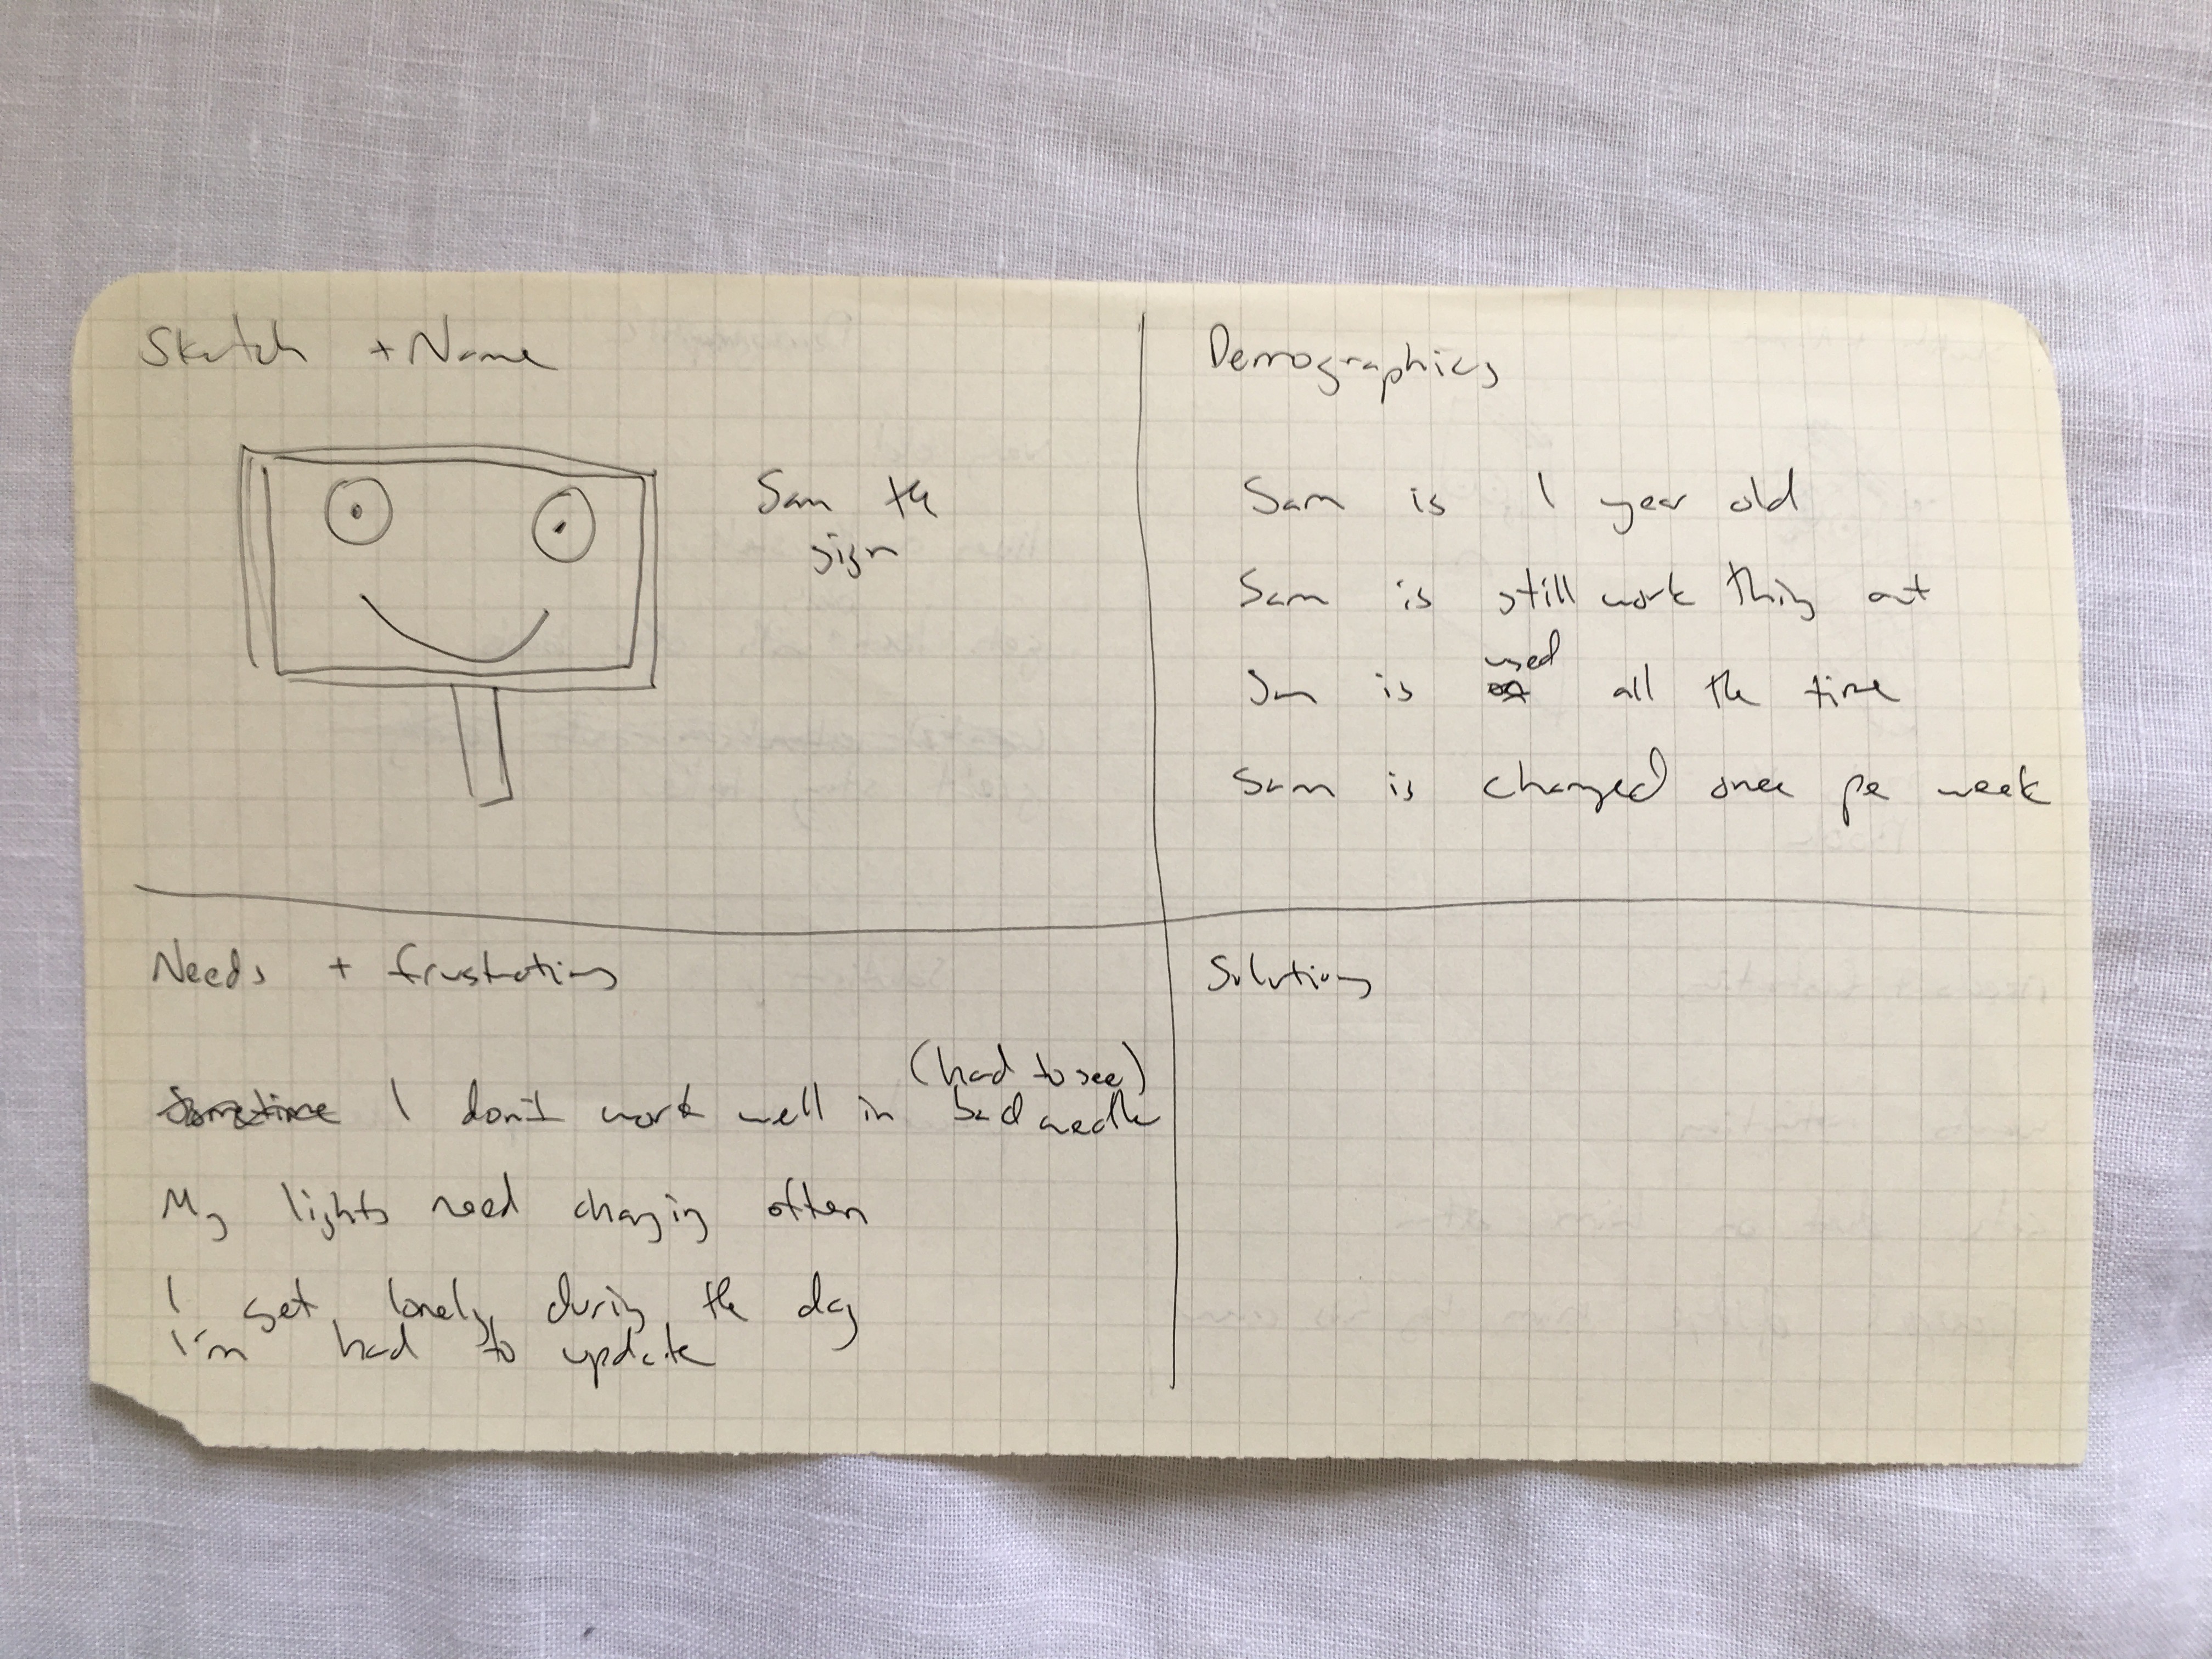 Sketch + Name
Sam the
sign
Demographics
Sam is 1 year old
Sam is still work thing out
used
Sam is all the time
Sam is changed once per week
Needs + frustrations
(hard to see)
Sometime I don't work well in bad weather
My lights need changing often
I get lonely during the day
I'm hard to update
Solutions